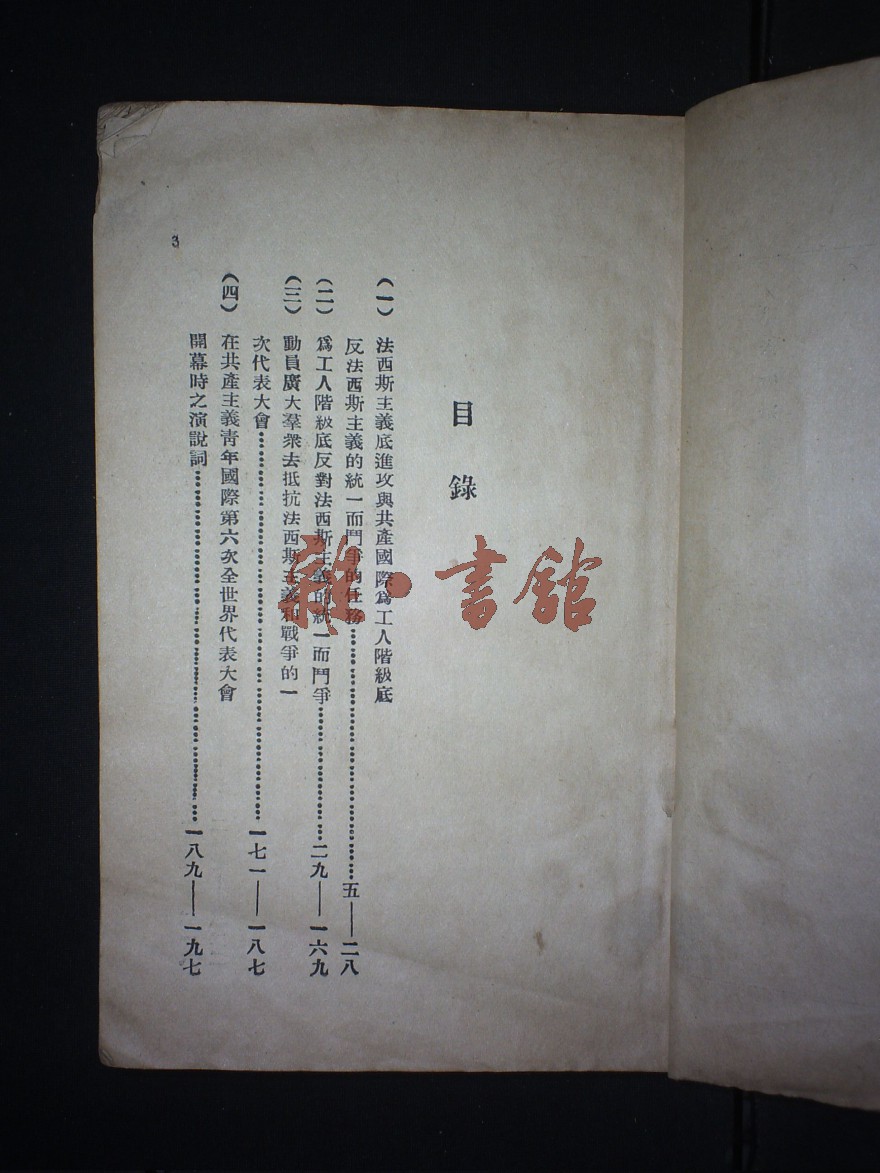 目錄
（一）法西斯主義底進攻與共產國際爲工人階級底
反法西斯主義的統一而鬥爭的任務…………五——二八
（二）爲工人階級底反對法西斯主義的統一而鬥爭…………二九——一六九
（三）動員廣大羣衆去抵抗法西斯主義和戰爭的一
次代表大會…………一七一——一八七
（四）在共產主義青年國際第六次全世界代表大會
開幕時之演說詞…………一八九——一九七
3
雜·書館